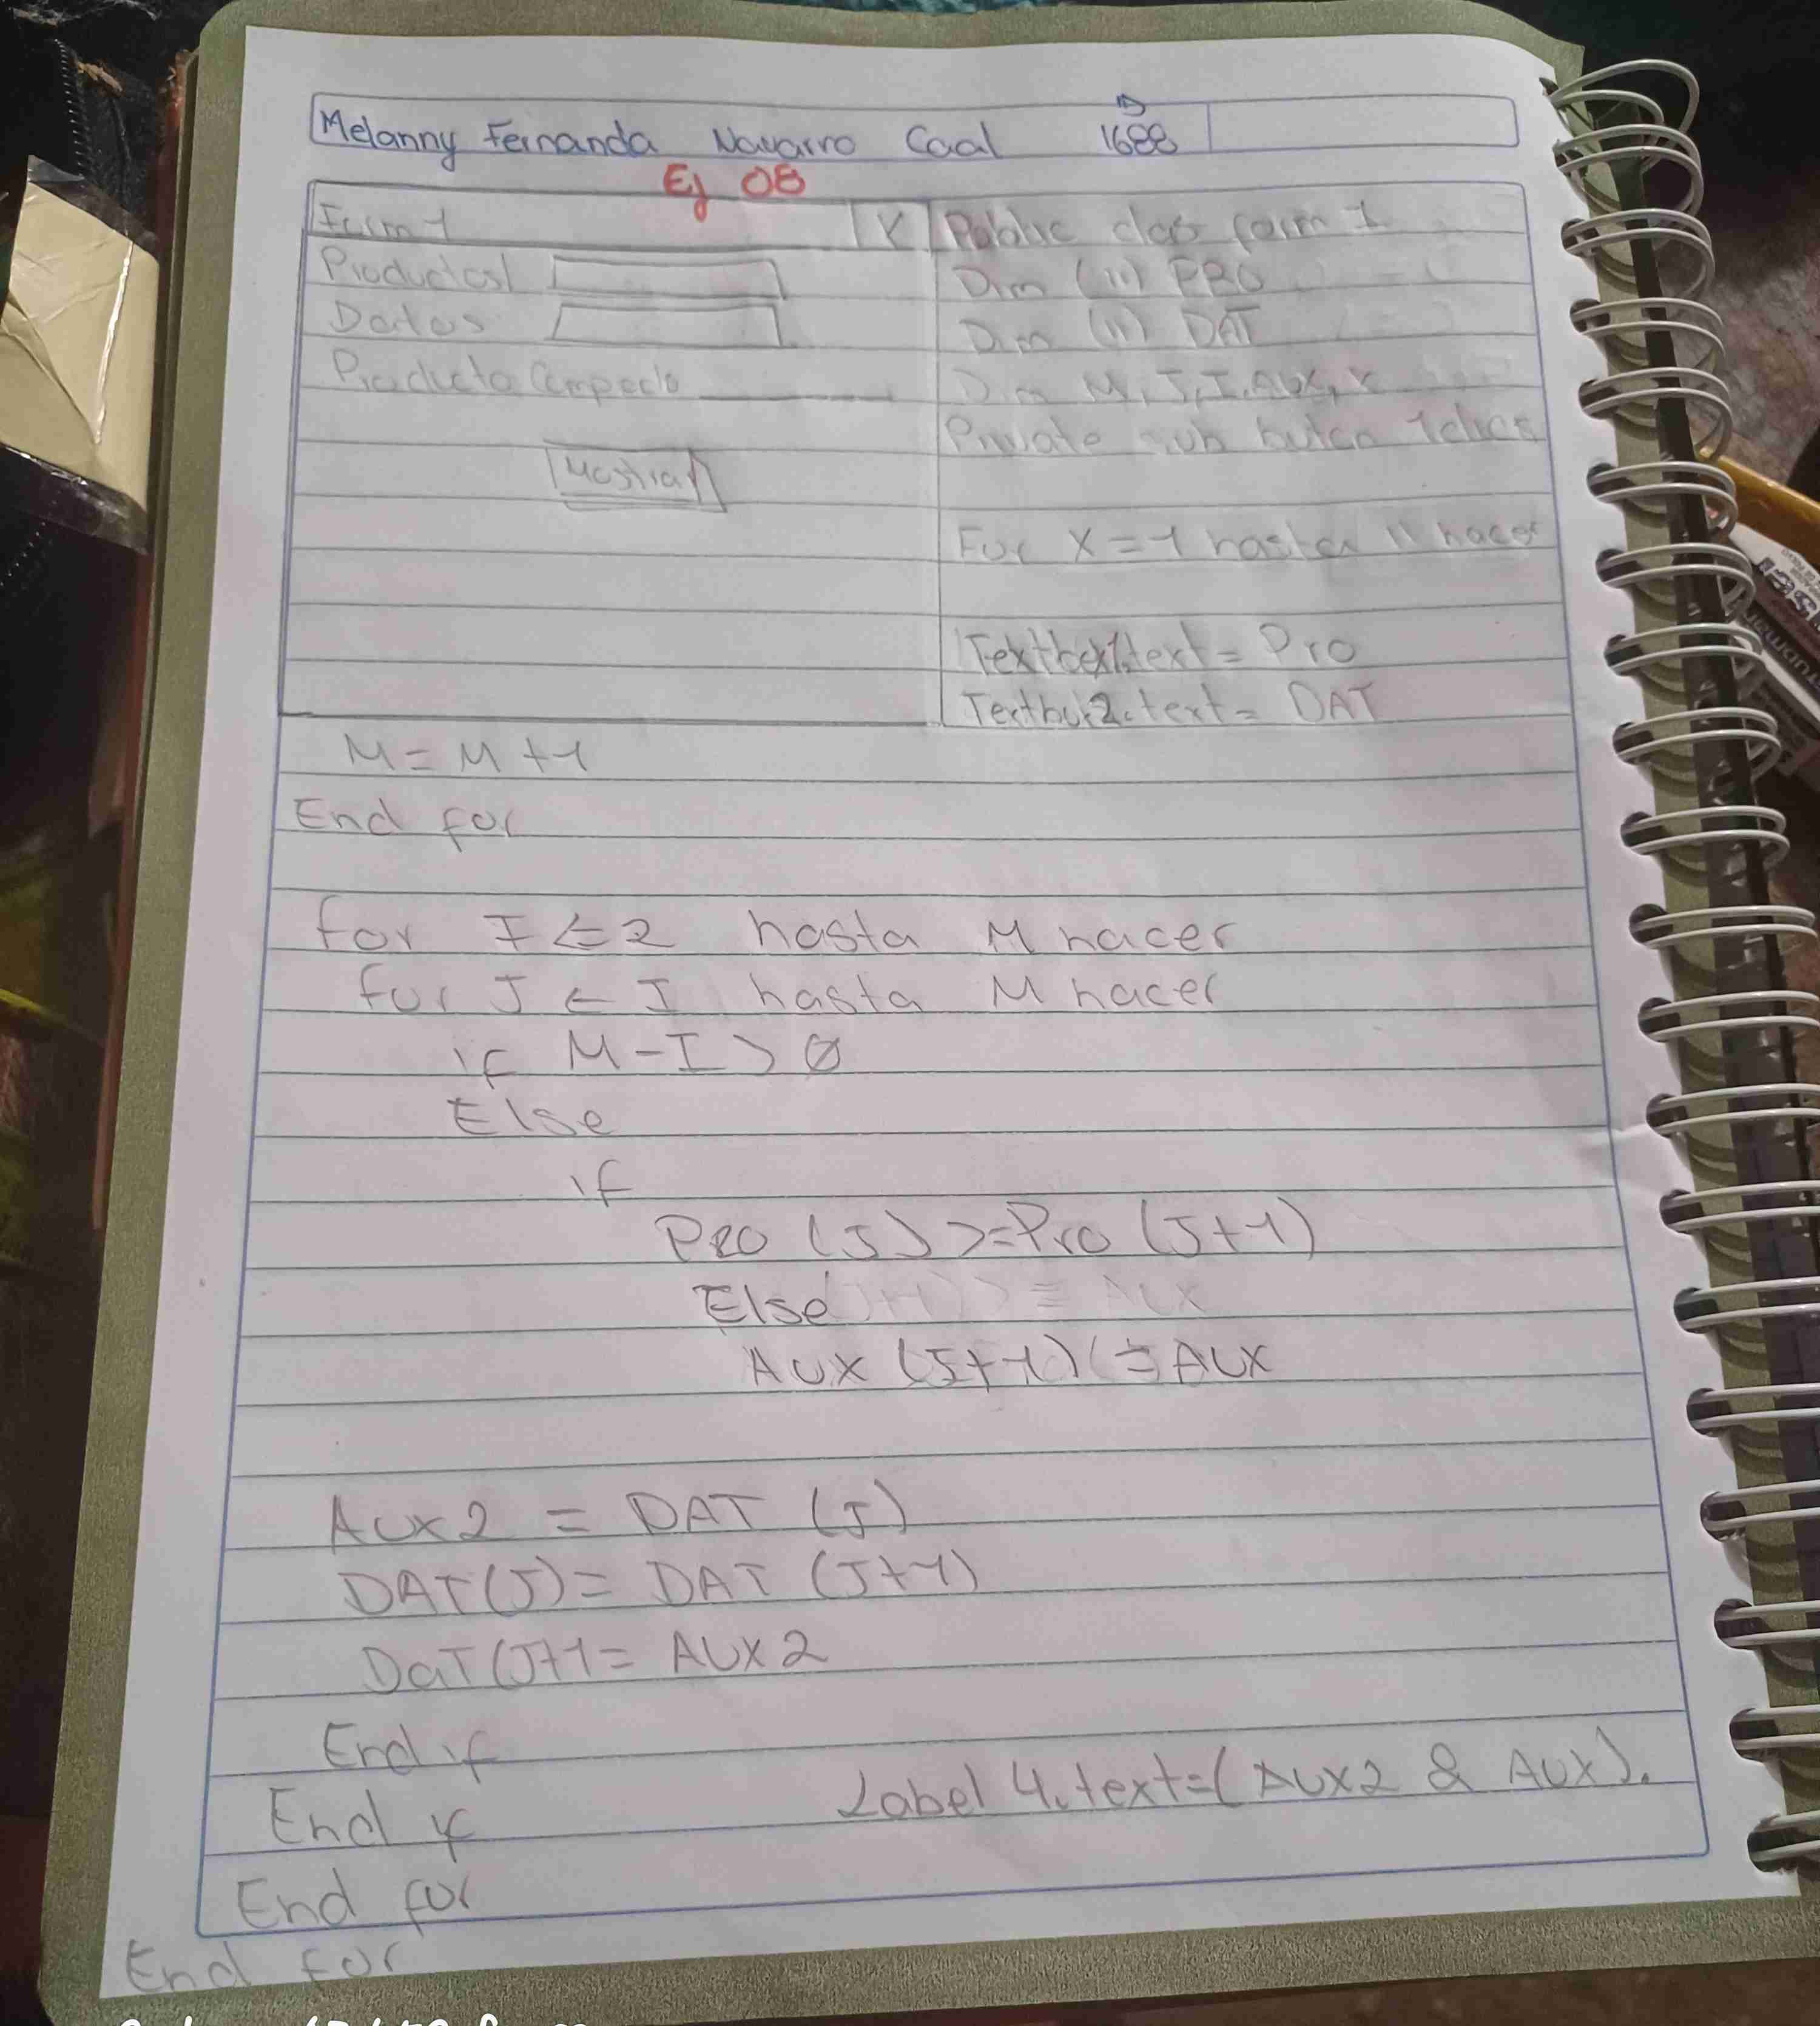 Melanny Fernanda Navarro Caal ID 1688
Ej 08
Form 1 X
Productos
Datos
Producto
Mostrar
Public class form 1
Dim (11) PRO
Dim (11) DAT
Dim M, J, I, AUX, X
Private sub
For X = 1 hasta 11 hacer
Textbox1.text = Pro
Textbox2.text = DAT
M = M + 1
End for
for I <= 2 hasta M hacer
for J ← I hasta M hacer
if M - I > 0
Else
if
PRO (J) >= Pro (J+1)
Else
AUX (J+1) (= AUX
AUX2 = DAT (J)
DAT(J) = DAT (J+1)
DaT(J+1 = AUX2
End if
Label 4.text=(AUX2 & AUX).
End if
End for
End for